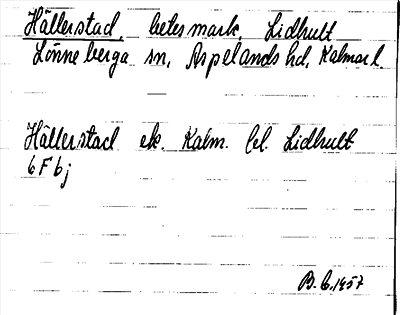 Hällerstad, betesmark, Lidhult
Lönneberga sn, Aspelands hd, Kalmar l.
Hällerstad ek. Kalm. bl. Lidhult
6 F b j
B. G. 1957